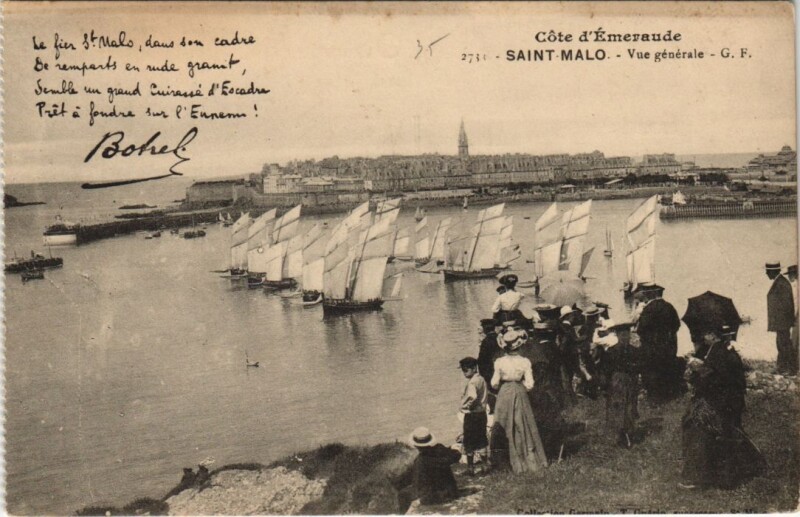 Le fier St Malo, dans son cadre
De remparts en rude granit,
Semble un grand Cuirassé d'Escadre
Prêt à fondre sur l'Ennemi !
Botrel
35
Côte d'Émeraude
2731 - SAINT-MALO. - Vue générale - G. F.
Collection Germain